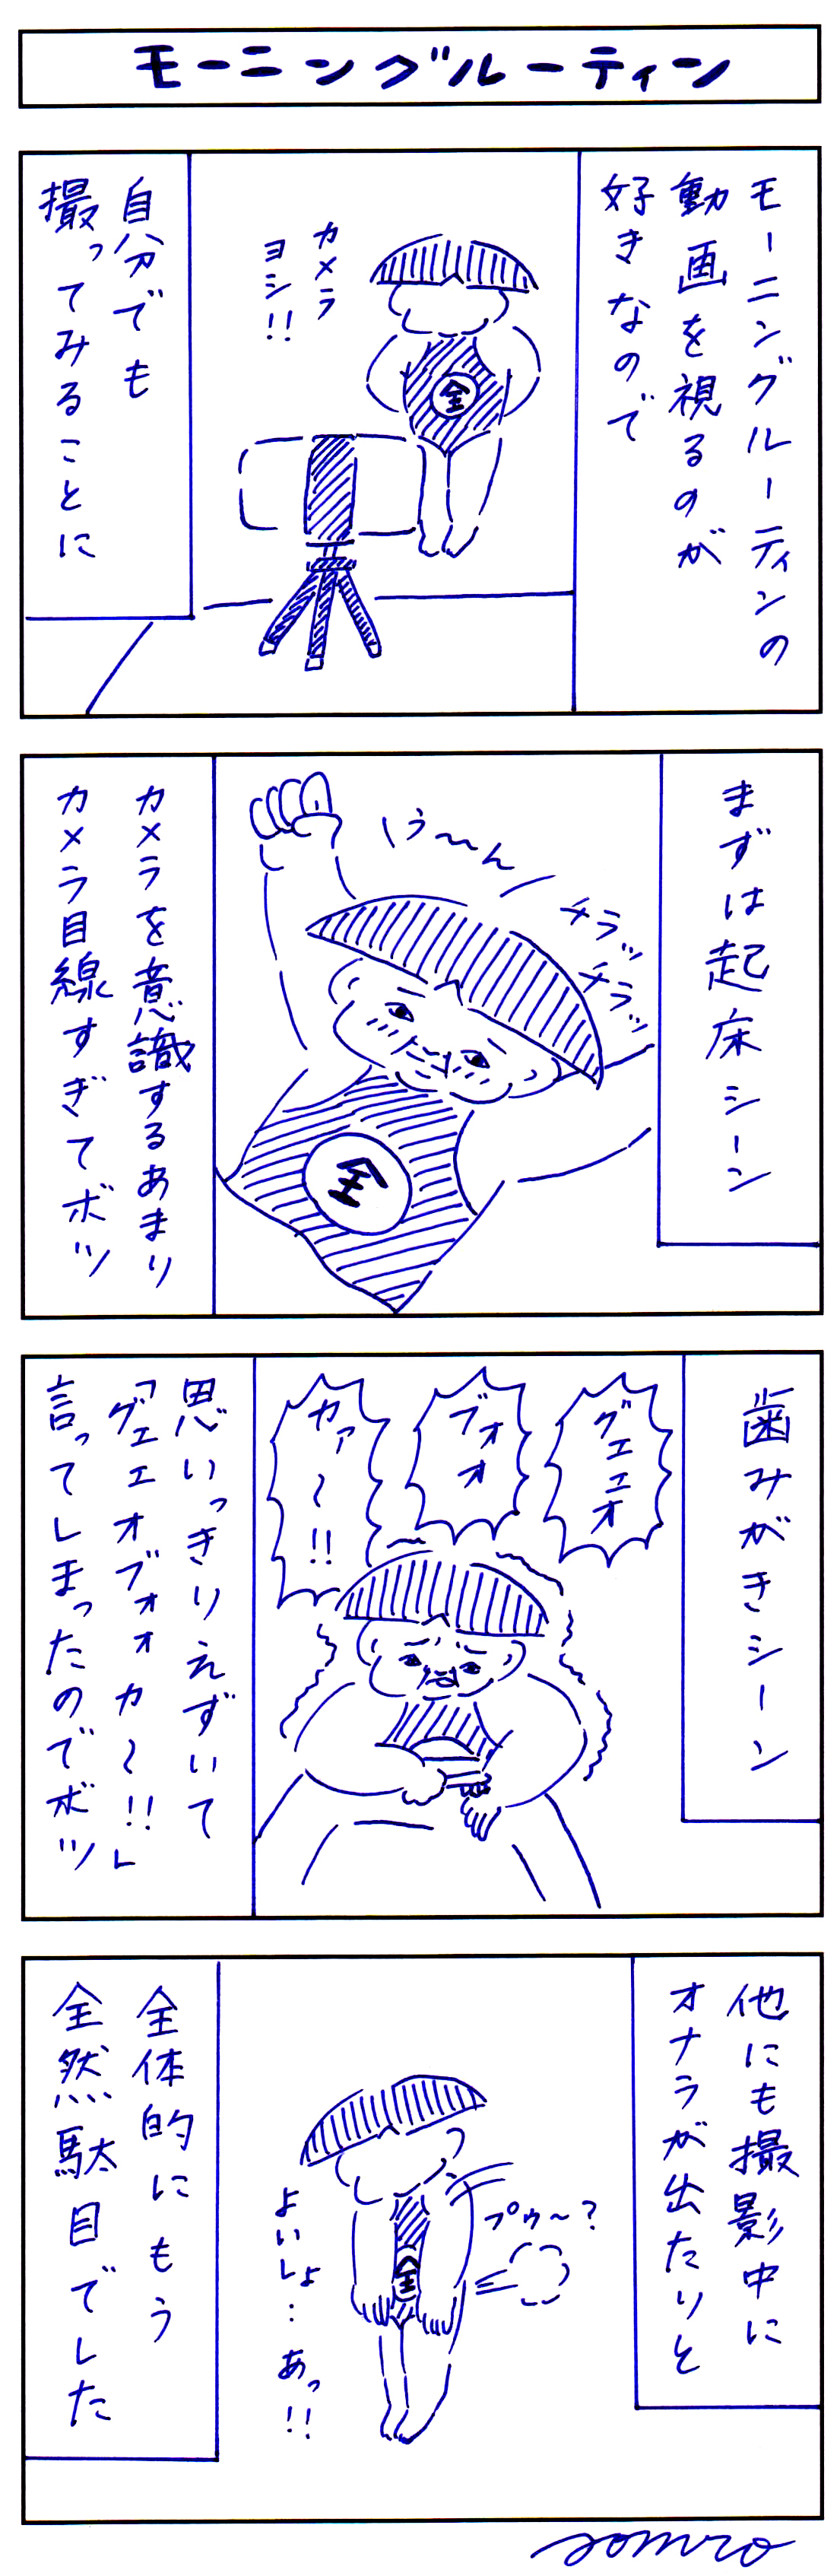 モーニングルーティン
モーニングルーティンの
動画を視るのが
好きなので
カメラ
ヨシ!!
全
自分でも
撮ってみることに
まずは起床シーン
う〜ん
チラッ
チラッ
全
カメラを意識するあまり
カメラ目線すぎてボツ
歯みがきシーン
グエエオ
ブォオ
カァ〜!!
思いっきりえずいて
「グエエオブォォカ〜!!」
言ってしまったのでボツ
他にも撮影中に
オナラが出たりと
プゥ〜?
よいしょ…あっ!!
全
全体的にもう
全然駄目でした
somro